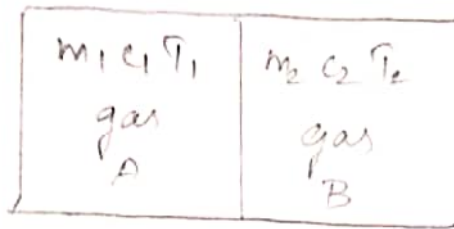 m₁ c₁ T₁
gas
A
m₂ c₂ T₂
gas
B